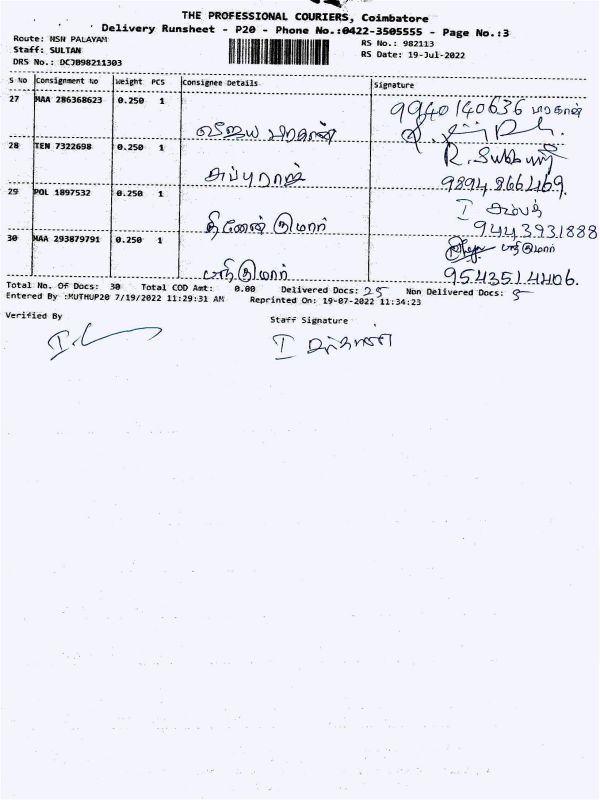 THE PROFESSIONAL COURIERS, Coimbatore
Delivery Runsheet - P20 - Phone No.:0422-3505555 - Page No.:3
Route: NSN PALAYAM
RS No.: 982113
Staff: SULTAN
RS Date: 19-Jul-2022
DRS No.: DCJB98211303
S No Consignment No Weight PCS Consignee Details Signature
27 MAA 286368623 0.250 1
9940140636
விஜய பிரகாஷ்
28 TEN 7322698 0.250 1
R.
சுப்புராஜ்
9894866469
29 POL 1897532 0.250 1
I
தினேஷ் குமார்
9443931888
30 MAA 293879791 0.250 1
9543514406.
Total No. Of Docs: 30 Total COD Amt: 0.00 Delivered Docs: 25 Non Delivered Docs: 5
Entered By :MUTHUP20 7/19/2022 11:29:31 AM Reprinted On: 19-07-2022 11:34:23
Verified By
Staff Signature